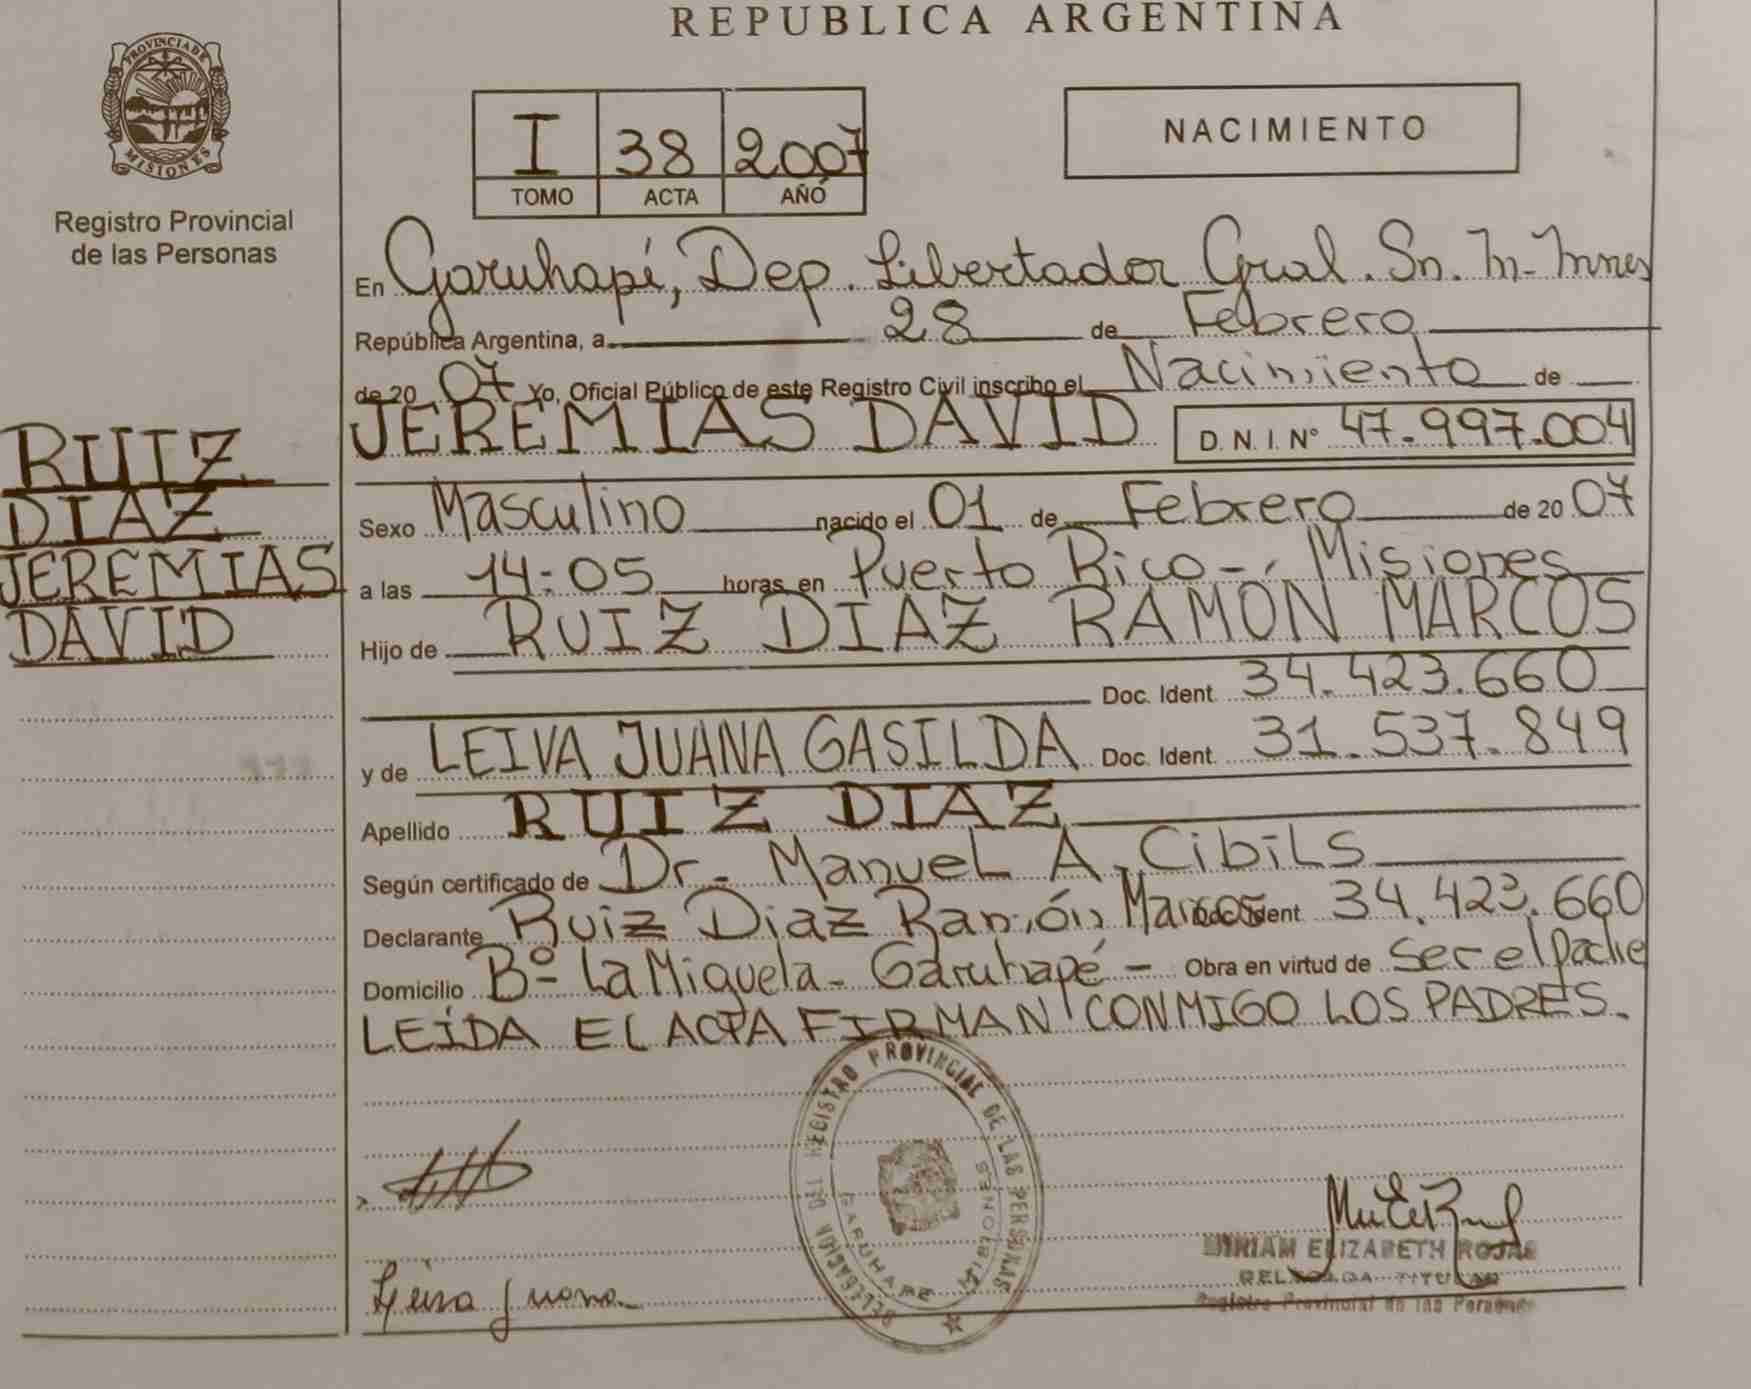 REPUBLICA ARGENTINA
PROVINCIA DE
MISIONES
Registro Provincial
de las Personas
I 38 2007
TOMO ACTA AÑO
NACIMIENTO
En Garuhapé, Dep. Libertador Gral. Sn. M- Mnes
República Argentina, a 28 de Febrero
de 20 07 Yo, Oficial Público de este Registro Civil inscribo el Nacimiento de
JEREMIAS DAVID D. N. I. N° 47.997.004
RUIZ
DIAZ
JEREMIAS
DAVID
Sexo Masculino nacido el 01 de Febrero de 20 07
a las 14:05 horas en Puerto Rico - Misiones
Hijo de RUIZ DIAZ RAMÓN MARCOS
Doc. Ident. 34.423.660
y de LEIVA JUANA GASILDA Doc. Ident. 31.537.849
Apellido RUIZ DIAZ
Según certificado de Dr. Manuel A. Cibils
Declarante Ruiz Diaz Ramón Marcos Doc. Ident. 34.423.660
Domicilio Bº La Miguela - Garuhapé - Obra en virtud de ser el Padre
LEÍDA EL ACTA FIRMAN CONMIGO LOS PADRES.
REGISTRO PROVINCIAL DE LAS PERSONAS
GARUHAPE MISIONES
Leiva Juana
MIRIAM ELIZABETH ROJAS
DELEGADA TITULAR
Registro Provincial de las Personas